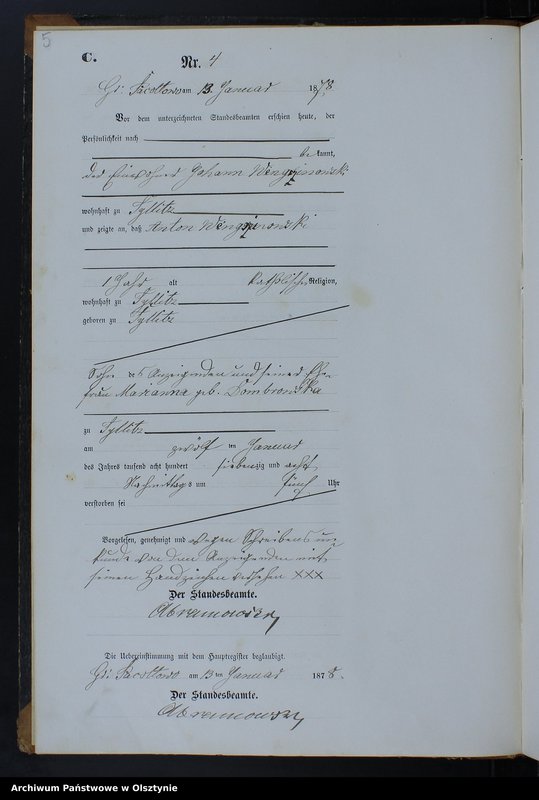 5
C.
Nr. 4
am 13. Januar 1878
Vor dem unterzeichneten Standesbeamten erschien heute, der
Persönlichkeit nach
be kannt,
der Einwohner Johann
wohnhaft zu Tyllitz
und zeigte an, daß Anton
1 Jahr alt katholischer Religion,
wohnhaft zu Tyllitz
geboren zu Tyllitz
Sohn des Anzeigenden und seiner Ehe
frau Marianna geb. Dombrowska
zu Tyllitz
am zwölf ten Januar
des Jahres tausend acht hundert siebenzig und acht
Nachmittags um fünf Uhr
verstorben sei
Vorgelesen, genehmigt und wegen Schreibens un
kunde von dem Anzeigenden mit
seinem Handzeichen versehen XXX
Der Standesbeamte.
Abramowski
Die Uebereinstimmung mit dem Hauptregister beglaubigt.
am 13 ten Januar 1878.
Der Standesbeamte.
Abramowski
Archiwum Państwowe w Olsztynie